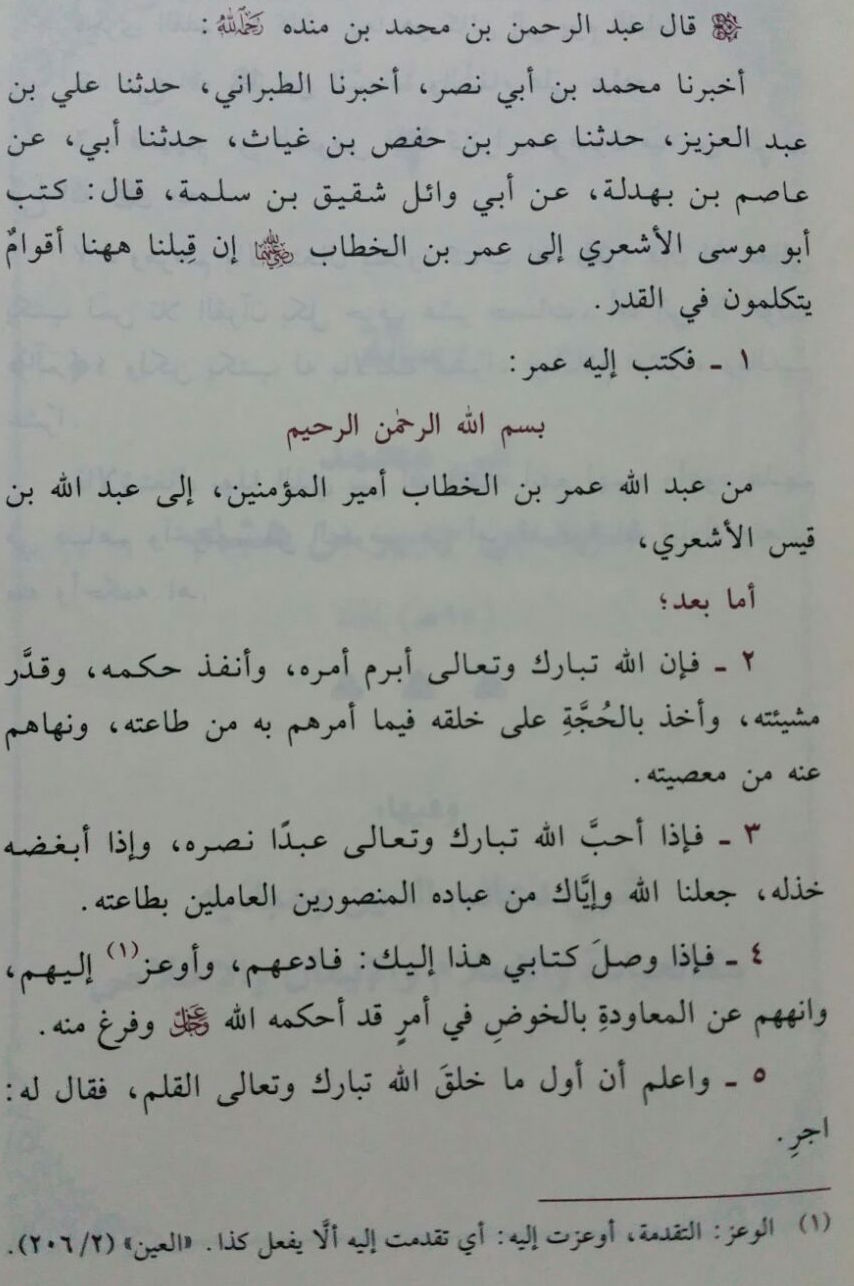 قال عبد الرحمن بن محمد بن منده رَحِمَهُ اللهُ :
أخبرنا محمد بن أبي نصر، أخبرنا الطبراني، حدثنا علي بن
عبد العزيز، حدثنا عمر بن حفص بن غياث، حدثنا أبي، عن
عاصم بن بهدلة، عن أبي وائل شقيق بن سلمة، قال: كتب
أبو موسى الأشعري إلى عمر بن الخطاب رضي الله عنهما إن قِبلنا ههنا أقوامٌ
يتكلمون في القدر.
١ ـ فكتب إليه عمر:
بسم الله الرحمٰن الرحيم
من عبد الله عمر بن الخطاب أمير المؤمنين، إلى عبد الله بن
قيس الأشعري،
أما بعد؛
٢ ـ فإن الله تبارك وتعالى أبرم أمره، وأنفذ حكمه، وقدَّر
مشيئته، وأخذ بالحُجَّةِ على خلقه فيما أمرهم به من طاعته، ونهاهم
عنه من معصيته.
٣ ـ فإذا أحبَّ الله تبارك وتعالى عبدًا نصره، وإذا أبغضه
خذله، جعلنا الله وإيَّاك من عباده المنصورين العاملين بطاعته.
٤ ـ فإذا وصلَ كتابي هذا إليك: فادعهم، وأوعز(١) إليهم،
وانههم عن المعاودةِ بالخوضِ في أمرٍ قد أحكمه الله عَزَّ وَجَلَّ وفرغ منه.
٥ ـ واعلم أن أول ما خلقَ الله تبارك وتعالى القلم، فقال له:
اجرِ.
(١) الوعز: التقدمة، أوعزت إليه: أي تقدمت إليه ألَّا يفعل كذا. «العين» (٢٠٦/٢).